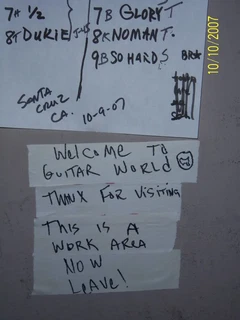 7A ½
8T DURIE
7B GLORY T
8K NOMAN T.
9B SO HARD S
SANTA
CRUZ
CA.
10-9-07
10/10/2007
WELCOME TO
GUITAR WORLD
THANX FOR VISITING
THIS IS A
WORK AREA
NOW
LEAVE!